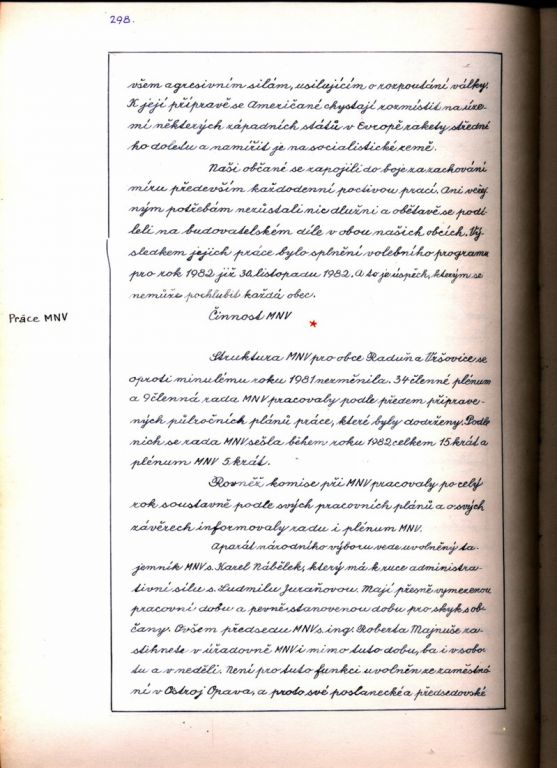 298.
všem agresivním silám, usilujícím o rozpoutání války.
K její přípravě se Američané chystají rozmístit na úze-
mí některých západních států v Evropě rakety střední
ho doletu a namířit je na socialistické země.
Naši občané se zapojili do boje za zachování
míru především každodenní poctivou prací. Ani veřej
ným potřebám nezůstali nic dlužni a obětavě se podí
leli na budovatelském díle v obou našich obcích. Vý
sledkem jejich práce bylo splnění volebního programu
pro rok 1982 již 30. listopadu 1982. A to je úspěch, kterým se
nemůže pochlubit každá obec.
Práce MNV
Činnost MNV
Struktura MNV pro obce Raduň a Vršovice se
oproti minulému roku 1981 nezměnila. 34 členné plénum
a 9 členná rada MNV pracovaly podle předem připrave-
ných půlročních plánů práce, které byly dodrženy. Podle
nich se rada MNV sešla během roku 1982 celkem 15 krát a
plénum MNV 5. krát.
Rovněž komise při MNV pracovaly po celý
rok soustavně podle svých pracovních plánů a o svých
závěrech informovaly radu i plénum MNV.
Aparát národního výboru vede uvolněný ta-
jemník MNV s. Karel Nábělek, který má k ruce administra-
tivní sílu s. Ludmilu Juraňovou. Mají přesně vymezenou
pracovní dobu a pevně stanovenou dobu pro styk s ob-
čany. Ovšem předsedu MNV s. ing. Roberta Majnuše za-
stihnete v úřadovně MNV i mimo tuto dobu, ba i v sobo-
tu a v neděli. Není pro tuto funkci uvolněn ze zaměstná
ní v Ostroj Opava, a proto své poslanecké a předsedovské